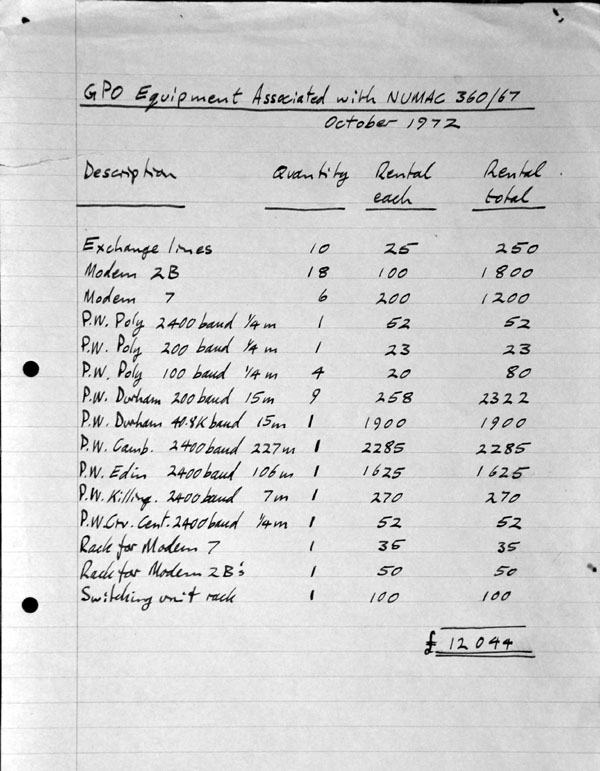 GPO Equipment Associated with NUMAC 360/67
October 1972
Description Quantity Rental each Rental total
Exchange lines 10 25 250
Modem 2B 18 100 1800
Modem 7 6 200 1200
P.W. Poly 2400 baud 1/4 m 1 52 52
P.W. Poly 200 baud 1/4 m 1 23 23
P.W. Poly 100 baud 1/4 m 4 20 80
P.W. Durham 200 baud 15m 9 258 2322
P.W. Durham 40.8K baud 15m 1 1900 1900
P.W. Camb. 2400 baud 227m 1 2285 2285
P.W. Edin 2400 baud 106m 1 1625 1625
P.W. Killing. 2400 baud 7m 1 270 270
P.W. Civ. Cent. 2400 baud 1/4 m 1 52 52
Rack for Modem 7 1 35 35
Rack for Modem 2B's 1 50 50
Switching unit rack 1 100 100
£ 12044